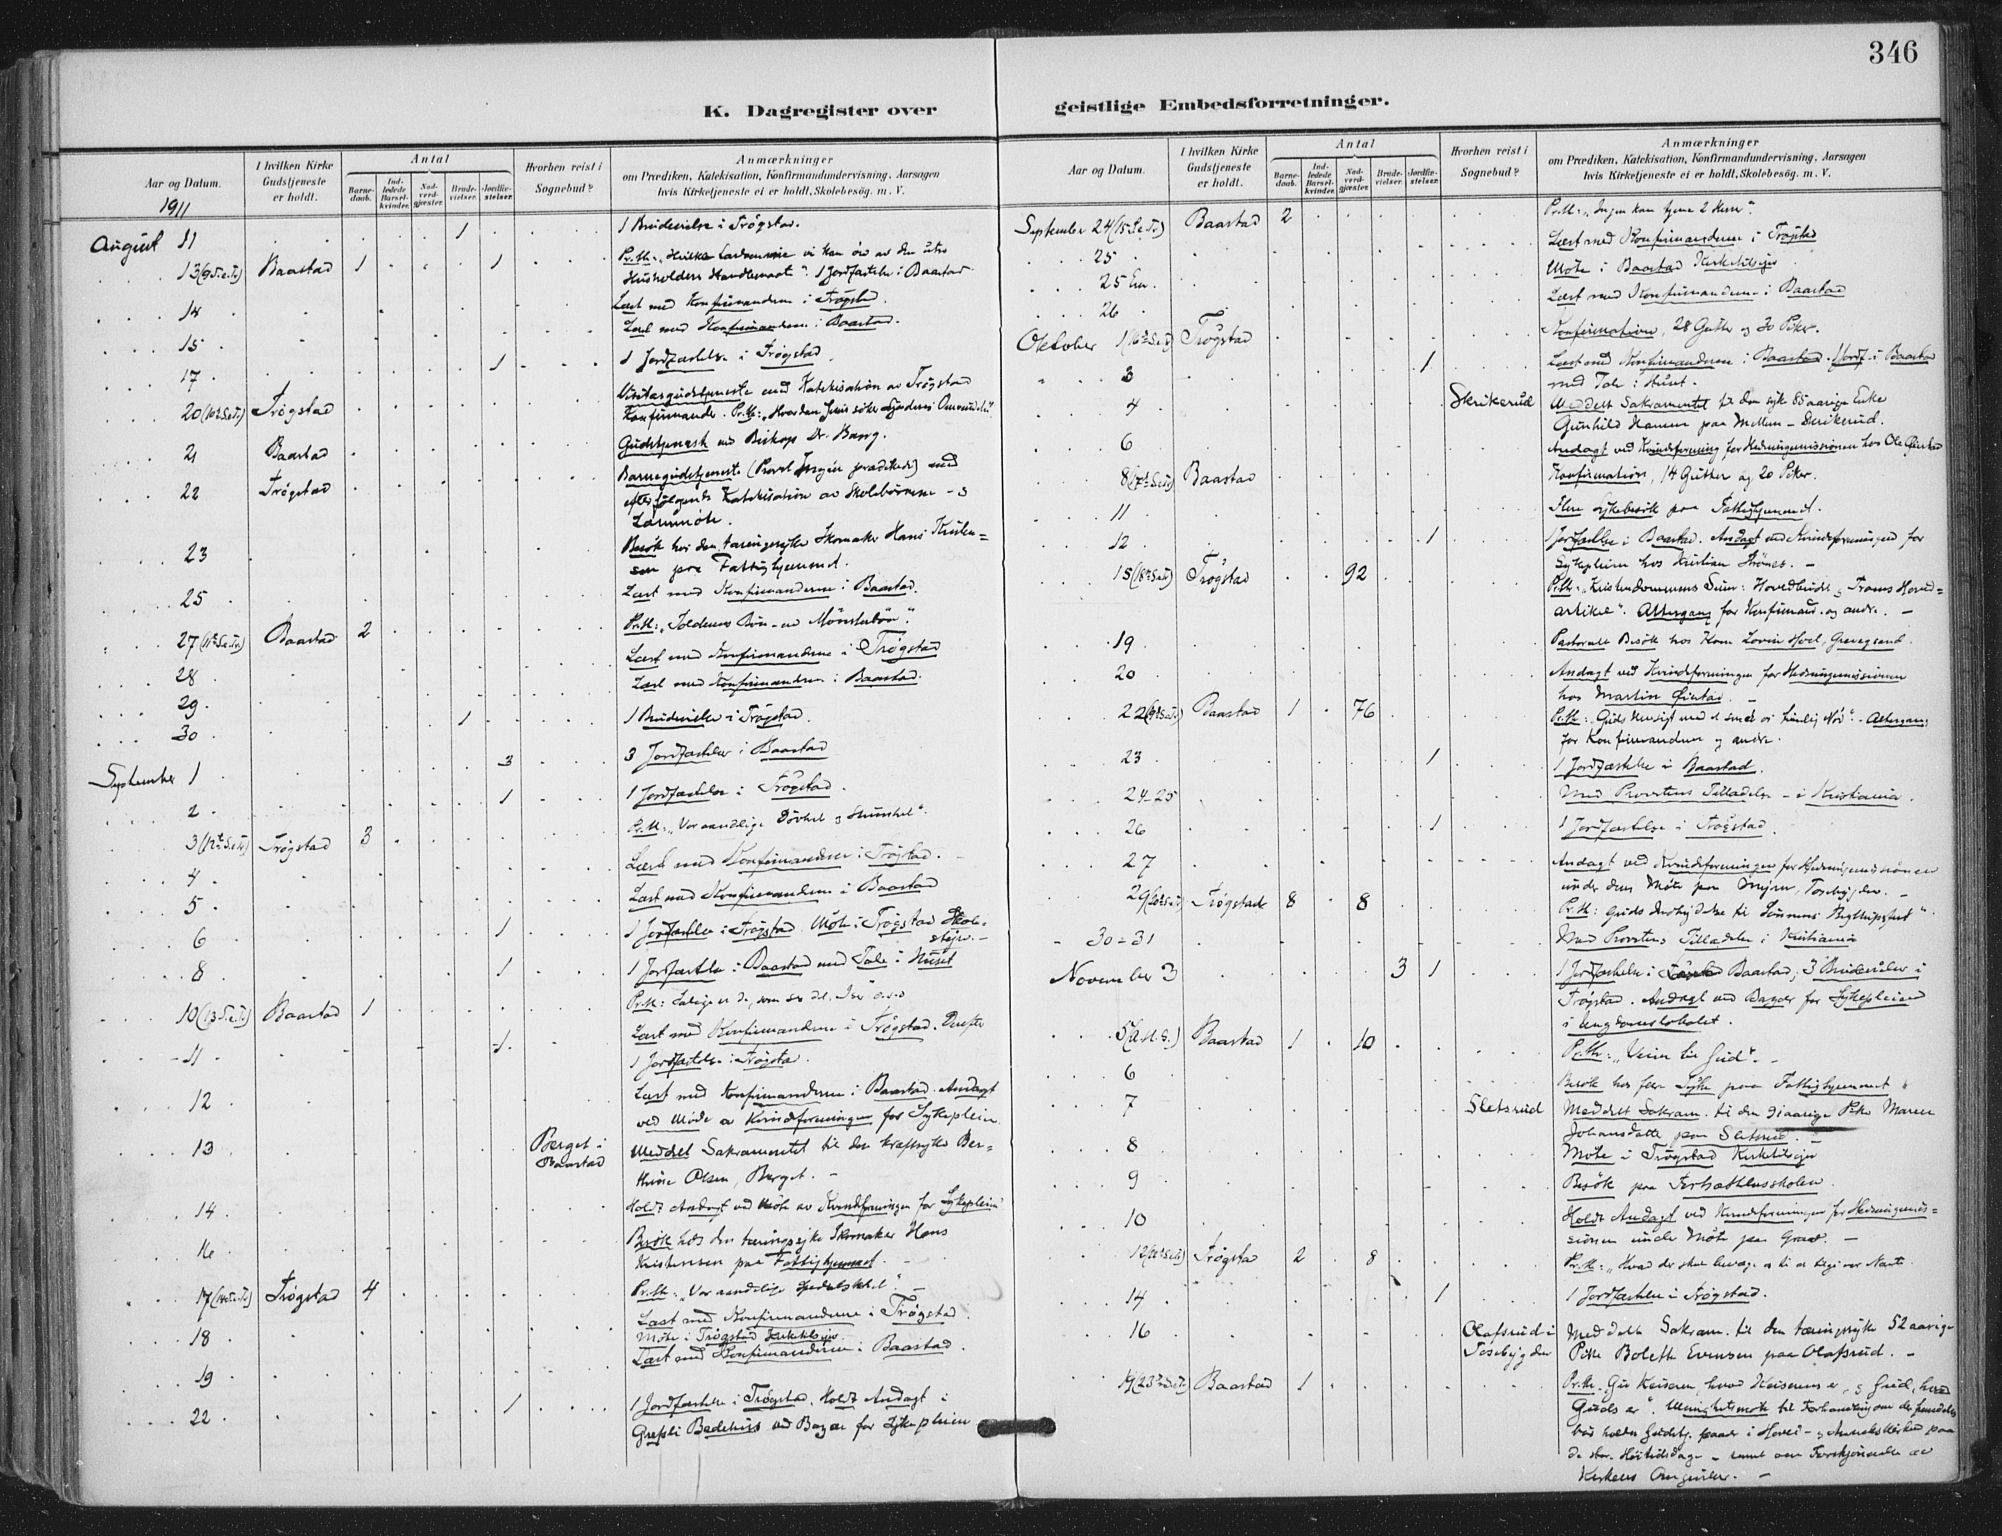 346
K. Dagregister over
Aar og Datum.
I hvilken Kirke
Gudstjeneste
er holdt.
Antal
Barne-
daab.
Ind-
ledede
Barsel-
kvinder.
Nad-
verd-
gjæster.
Brude-
vielser.
Jordfæ-
stelser.
Hvorhen reist i
Sognebud?
Anmærkninger
om Prædiken, Katekisation, Konfirmandundervisning, Aarsagen
hvis Kirketjeneste ei er holdt, Skolebesøg. m. V.
1911
August 11 1 1 Brudevielse i Trøgstad.
13 (9. S. e. Tr.) Baastad 1 1 Pr. M.: "Hvilke Lærdomme vi kan dra av den utro
Husholders Handlemaate". 1 Jordfæstelse i Baastad
14 Læst med Konfirmanderne i Trøgstad.
15 Læst med Konfirmanderne i Baastad.
17 1 1 Jordfæstelse i Trøgstad.
20 (10. S. e. Tr.) Trøgstad Visitasgudstjeneste med Katekisation av Trøgstad
Konfirmander. Pr. M.: "Hvordan Jesus søker Synderes Omvendelse"
21 Baastad Gudstjeneste ved Biskop Dr. Bang.
22 Trøgstad Barnegudstjeneste (Provst prædikede) med
efterfølgende Katekisation av Skolebørnene - og
23 Besøk hos den tæringssyke Skomaker Hans Kristen-
sen paa Fattighjemmet.
25 Læst med Konfirmanderne i Baastad.
27 (11te S. e. Tr.) Baastad 2 Pr. M.: "Tolderens Bøn - en Mønsterbøn".
28 Læst med Konfirmanderne i Trøgstad
29 Læst med Konfirmanderne i Baastad.
30 1 1 Brudevielse i Trøgstad.
September 1 3 3 Jordfæstelser i Baastad
2 1 1 Jordfæstelse i Trøgstad.
3 (12te S. e. Tr.) Trøgstad 3 Pr. M.: "Vor aandelige Døvhet og Stumhet".
4 Læst med Konfirmanderne i Trøgstad.
5 Læst med Konfirmanderne i Baastad
6 1 1 Jordfæstelse i Trøgstad. Møte i Trøgstad Skole-
8 1 1 Jordfæstelse i Baastad med Tale i Huset
10 (13. S. e. Tr.) Baastad 1 Pr. M.: Salige er de, som ser det, I ser o.s.v.
11 1 Læst med Konfirmanderne i Trøgstad. Derefter
1 Jordfæstelse i Trøgstad.
12 Læst med Konfirmanderne i Baastad. Andagt
ved Møde av Kvindeforeningen for Sykepleien
13 Berget i
Baastad Meddelt Sakramentet til den kræftsyke Ber-
Olsen, Berget. -
14 Holdt Andagt ved Møte av Kvindeforeningen for Sykepleien
16 Besøk hos den tæringssyke Skomaker Hans
Kristensen paa Fattighjemmet. -
17 (14. S. e. Tr.) Trøgstad 4 Pr. M.: "Vor aandelige Spedalskhet" -
18 Læst med Konfirmanderne i Trøgstad.
Møte i Trøgstad Kirketilsyn.
19 Læst med Konfirmanderne i Baastad.
22 1 1 Jordfæstelse i Trøgstad. Holdt Andagt i
Grefsli Bedehus ved Bazar for Sykepleien
geistlige Embedsforretninger.
Aar og Datum.
I hvilken Kirke
Gudstjeneste
er holdt.
Antal
Barne-
daab.
Ind-
ledede
Barsel-
kvinder.
Nad-
verd-
gjæster.
Brude-
vielser.
Jordfæ-
stelser.
Hvorhen reist i
Sognebud?
Anmærkninger
om Prædiken, Katekisation, Konfirmandundervisning, Aarsagen
hvis Kirketjeneste ei er holdt, Skolebesøg. m. V.
September 24 (15. S. e. Tr.) Baastad 2 Pr. M.: "Ingen kan tjene 2 Herrer".
25 Læst med Konfirmanderne i Trøgstad
25 Em. Møte i Baastad Kirketilsyn
26 Læst med Konfirmanderne i Baastad
Oktober 1 (16de S. e. Tr.) Trøgstad Konfirmation, 28 Gutter og 30 Piker.
3 1 Læst med Konfirmanderne i Baastad. 1 Jordf. i Baastad
med Tale i Huset.
4 Skrikerud Meddelt Sakramentet til den syke 85 aarige Enke
Gunhild Hansen paa Mellem-Skrikerud.
6 Andagt ved Kvindeforening for Hedningemissionen hos Ole Øiestad
8 (17de S. e. Tr.) Baastad Konfirmation, 14 Gutter og 20 Piker.
11 Flere Sykebesøk paa Fattighjemmet.
12 1 1 Jordfæstelse i Baastad. Andagt ved Kvindeforeningen for
Sykepleien hos Kristian -
15 (18de S. e. Tr.) Trøgstad 92 Pr. M.: "Kristendommens Sum: Hovedbudet og Troens Hoved-
artikel". Altergang for Konfirmand. og andre. -
19 Pastoralt Besøk hos Kone
20 Andagt ved Kvindeforeningen for Hedningemissionen
hos Martin Øiestad. -
22 (19de S. e. Tr.) Baastad 1 76 Pr. M.: "Guds Hensigt med at sende os timelig Nød". - Altergang
for Konfirmanderne og andre.
23 1 1 Jordfæstelse i Baastad.
24-25 Med Provstens Tilladelse - i Kristiania.
26 1 1 Jordfæstelse i Trøgstad.
27 Andagt ved Kvindeforeningen for Hedningemissionen
under dens Møte paa Tosebygden. -
29 (20de S. e. Tr.) Trøgstad 8 8 Pr. M.: Guds Indbydelse til Sønnens Bryllupsfest".
30-31 Med Provstens Tilladelse i Kristiania
November 3 3 1 1 Jordfæstelse i Baastad; 3 Brudevielser i
Trøgstad. Andagt ved Bazar for Sykepleien
i Ungdomslokalet.
5 (A. H. S.) Baastad 1 10 Pr. M.: "Veien til Gud". -
6 Besøk hos flere Syke paa Fattighjemmet
7 Sletsrud Meddelt Sakram. til den 91 aarige Pike Maren
Johansdatter paa Sletsrud. -
8 Møte i Trøgstad Kirketilsyn
9 Besøk paa Fortsættelsesskolen.
10 Holdt Andagt ved Kvindeforeningen for Hedningemis-
sionen under Møte paa -
12 Trøgstad 2 8 Pr. M.: "Hvad der skal bevæge os til at tilgi vor Næste.
14 1 1 Jordfæstelse i Trøgstad.
16 Olafsrud i
Tosebygden Meddelt Sakram. til den tæringssyke 52 aarige
Pike Bolette Evensen paa Olafsrud. -
19 (23de S. e. Tr.) Baastad 1 Pr. M.: "Giv Keiseren, hvad Keiserens er, og Gud, hvad
Guds er". Menighetsmøte til Forhandling om de fremdeles
bør holdes Gudstj. baade i Hoved- og Annekskirken paa
de store Høitidsdage - samt om
Kirkens -